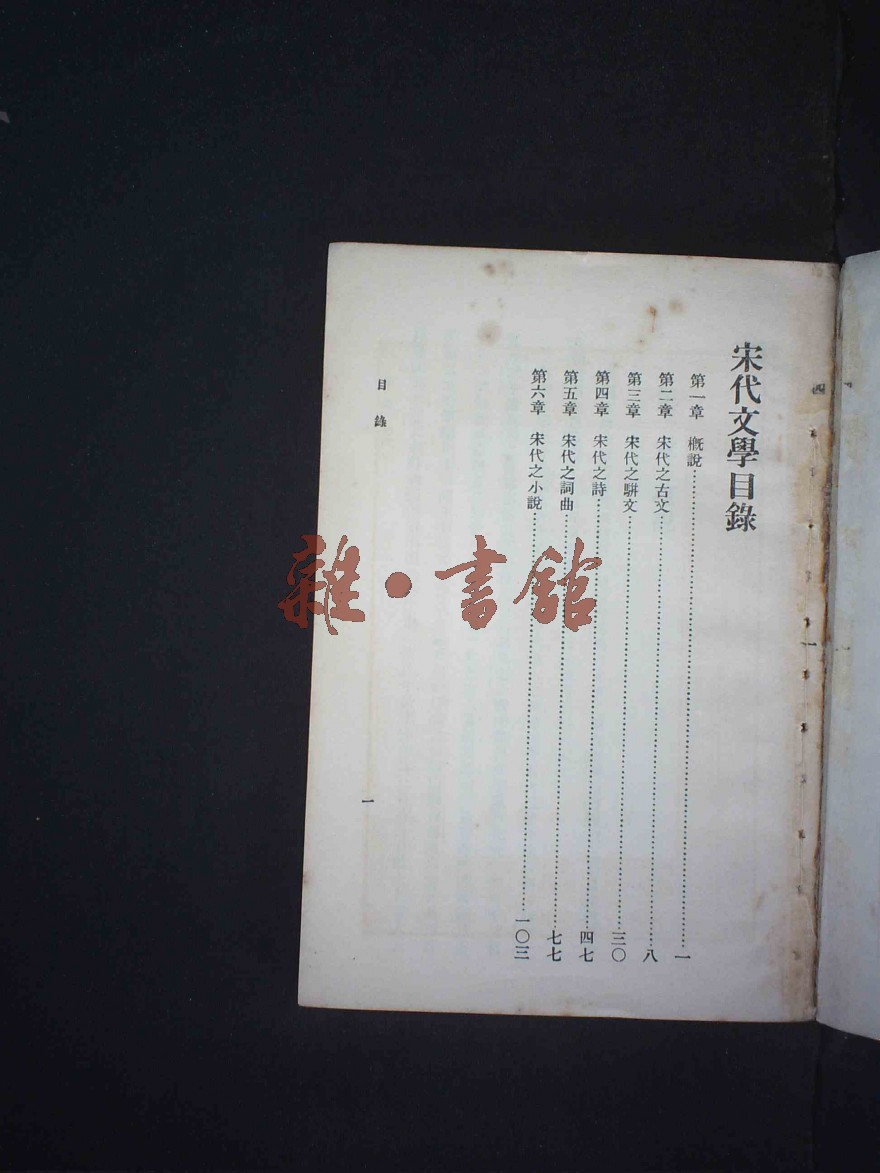 宋代文學目錄
第一章 概說……一
第二章 宋代之古文……八
第三章 宋代之駢文……三〇
第四章 宋代之詩……四七
第五章 宋代之詞曲……七七
第六章 宋代之小說……一〇三
目錄
一
雜·書館